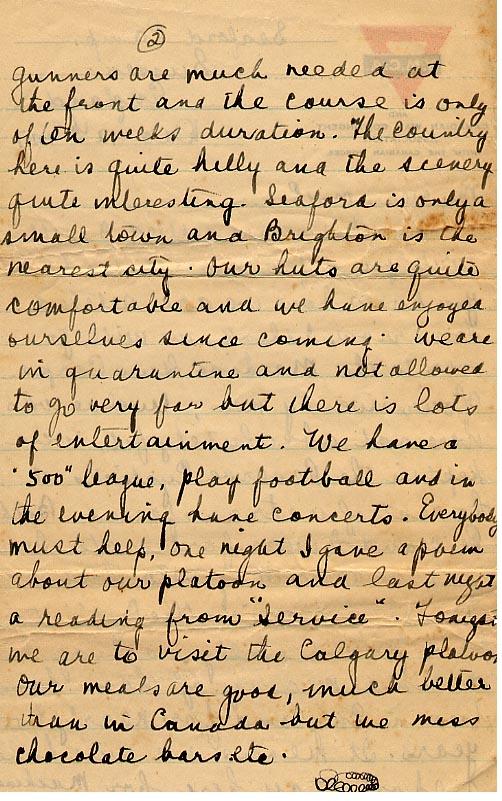 2
gunners are much needed at
the front and the course is only
of ten weeks duration. The country
here is quite hilly and the scenery
quite interesting. Seaford is only a
small town and Brighton is the
nearest city. Our huts are quite
comfortable and we have enjoyed
ourselves since coming. We are
in quarantine and not allowed
to go very far but there is lots
of entertainment. We have a
"500" league, play football and in
the evening have concerts. Everybody
must help, one night I gave a poem
about our platoon and last night
a reading from "Service". Tonight
we are to visit the Calgary platoon
Our meals are good, much better
than in Canada but we miss
chocolate bars etc.